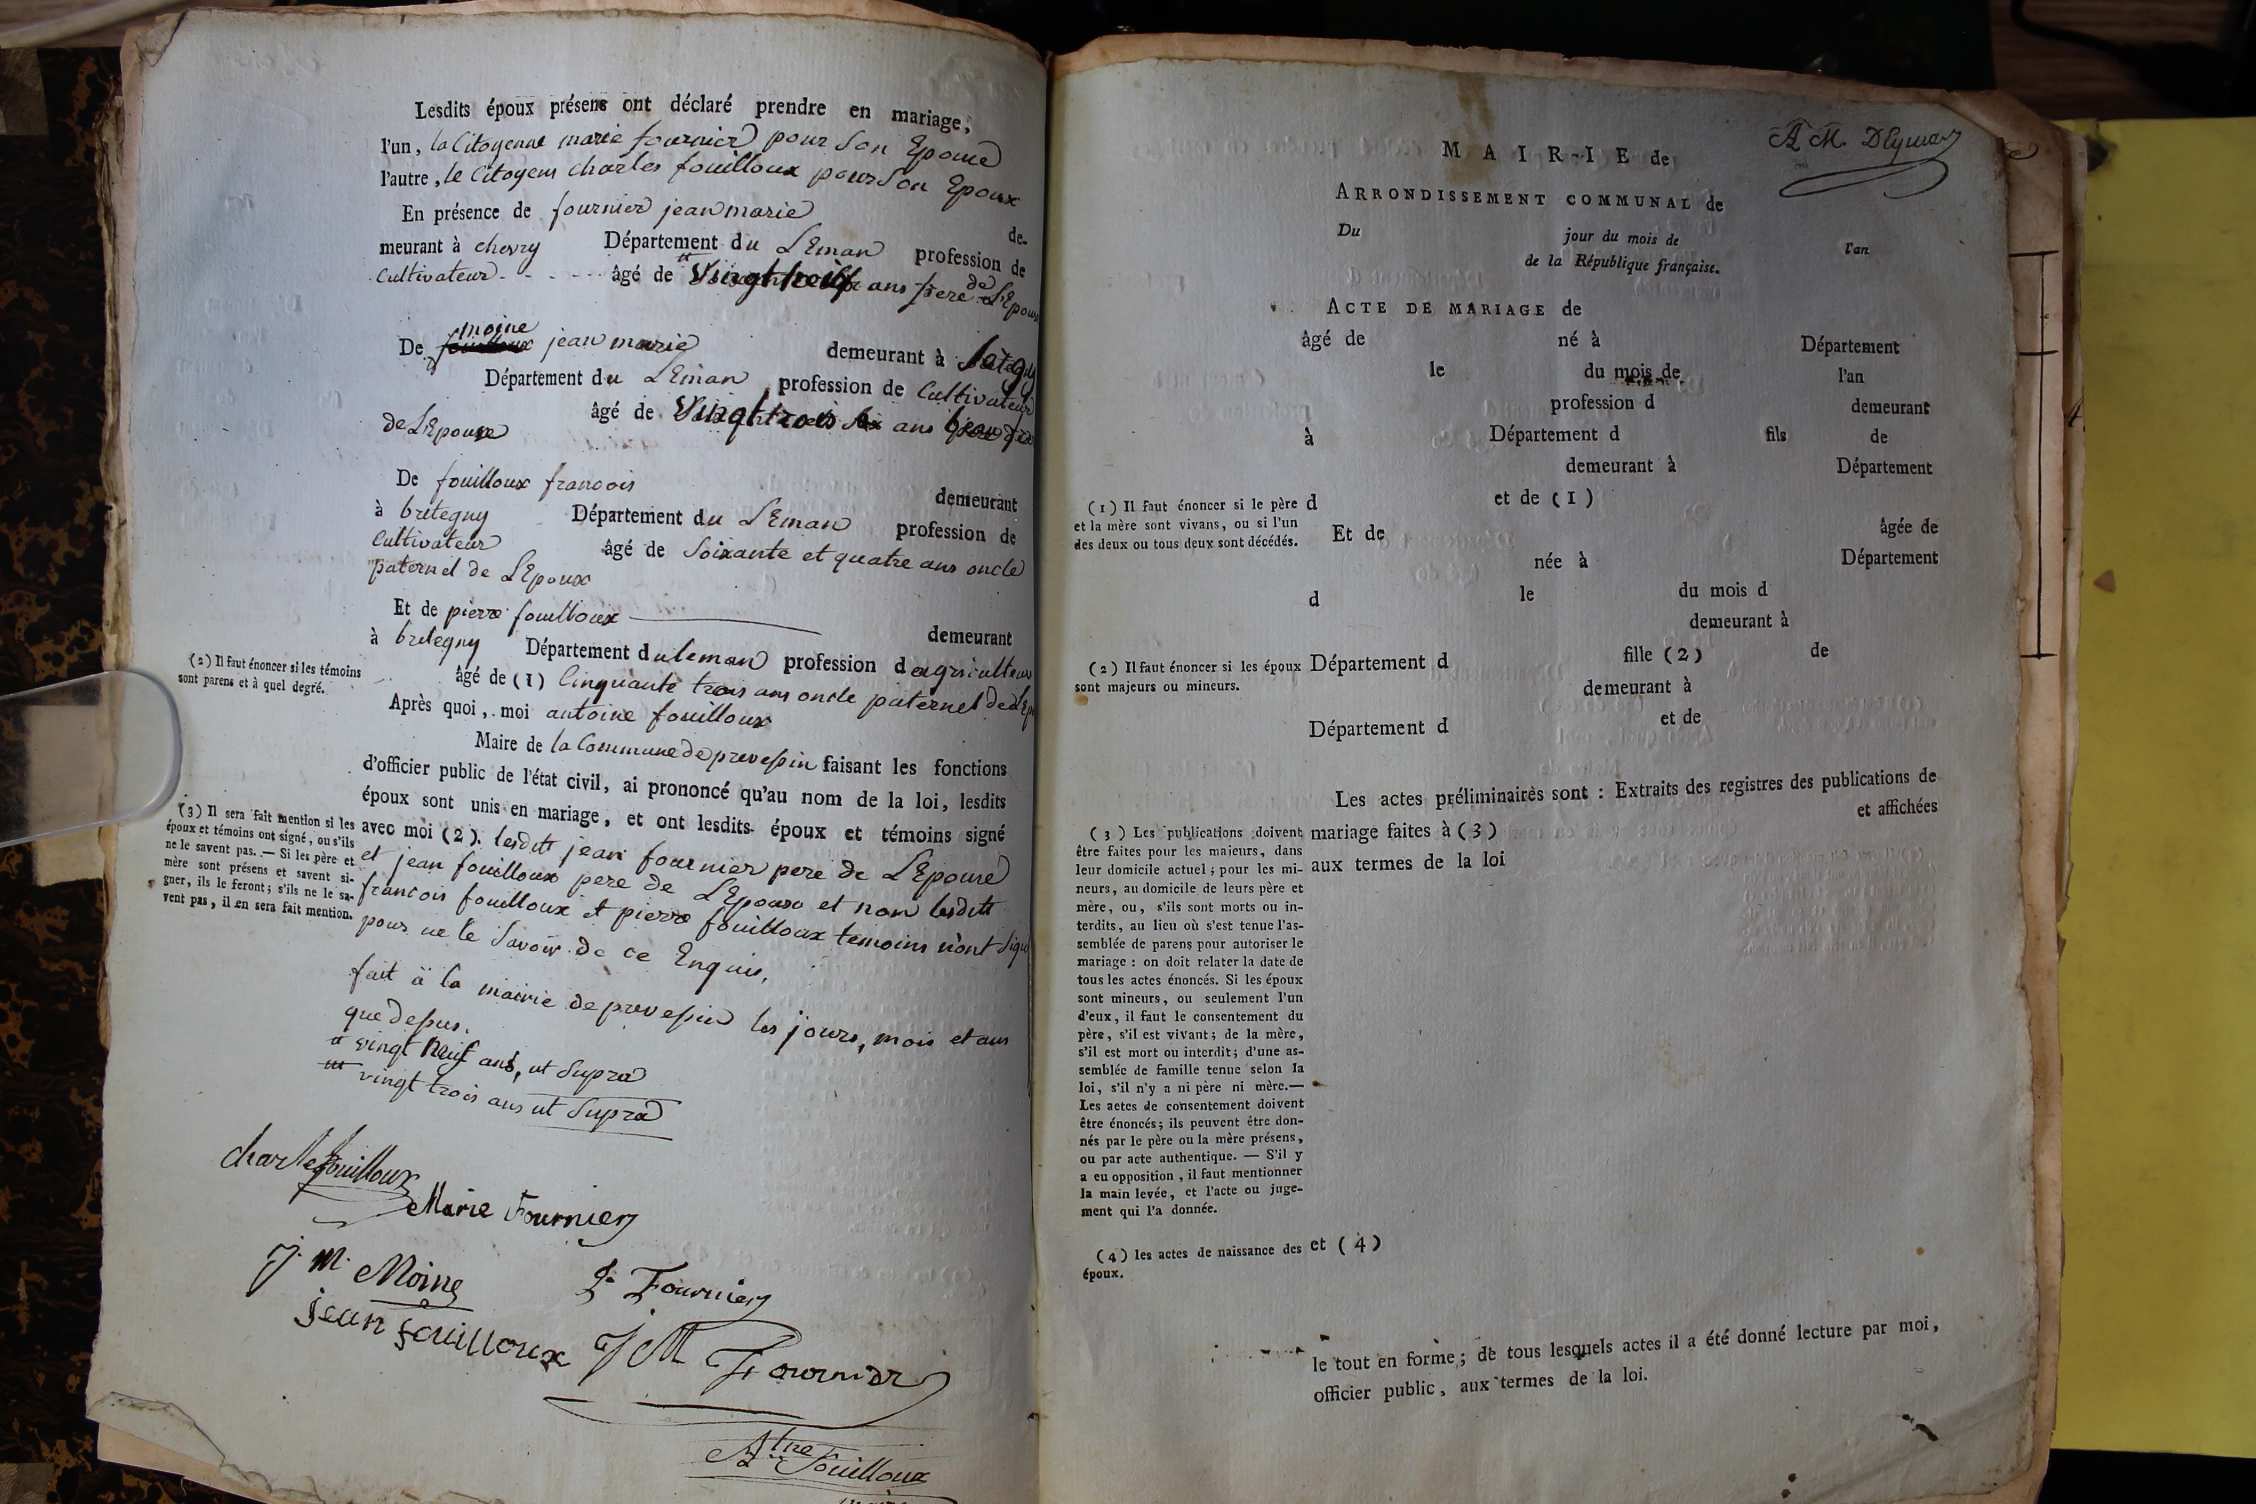 Lesdits époux présens ont déclaré prendre en mariage,
l'un, la Citoyenne marie fournier pour son Epouse
l'autre, le Citoyens charles fouilloux pour son Epoux
En présence de fournier jean marie de-
meurant à chevry Département du Léman profession de
Cultivateur - - - - - âgé de vingt neuf ans frere de L'Epouse
De moine jean marie demeurant à
Département du Léman profession de Cultivateur
âgé de vingt trois ans beau frere
de L'Epouse
De fouilloux francois demeurant
à bretegny Département du Léman profession de
Cultivateur âgé de Soixante et quatre ans oncle
paternel de L'Epoux
Et de pierre fouilloux demeurant
à bretegny Département du leman profession d agriculteur
âgé de (1) Cinquante trois ans oncle paternel de L'Ep
Après quoi, moi antoine fouilloux
Maire de la Commune de prevessin faisant les fonctions
d'officier public de l'état civil, ai prononcé qu'au nom de la loi, lesdits
époux sont unis en mariage, et ont lesdits époux et témoins signé
avec moi (2). lesdits jean fournier pere de L'Epouse
et jean fouilloux pere de L'Epoux et non lesdits
francois fouilloux et pierre fouilloux temoins n'ont signé
pour ne le Savoir de ce Enquis,
fait à la mairie de prevessin les jours, mois et ans
que dessus.
vingt neuf ans, ut Supra
vingt trois ans ut Supra
(2) Il faut énoncer si les témoins
sont parens et à quel degré.
(3) Il sera fait mention si les
époux et témoins ont signé, ou s'ils
ne le savent pas. — Si les père et
mère sont présens et savent si-
gner, ils le feront; s'ils ne le sa-
vent pas, il en sera fait mention.
charle fouilloux
Marie Fournier
J. M. Moine
J. Fournier
jean fouilloux
J M Fournier
Atne Fouilloux
maire
A. M.
MAIRIE de
ARRONDISSEMENT COMMUNAL de
Du jour du mois de l'an
de la République française.
ACTE DE MARIAGE de
âgé de né à Département
le du mois de l'an
profession d demeurant
à Département d fils de
demeurant à Département
d et de (1)
Et de âgée de
née à Département
d le du mois d
demeurant à
Département d fille (2) de
demeurant à
Département d et de
Les actes préliminaires sont : Extraits des registres des publications de
mariage faites à (3) et affichées
aux termes de la loi
(1) Il faut énoncer si le père
et la mère sont vivans, ou si l'un
des deux ou tous deux sont décédés.
(2) Il faut énoncer si les époux
sont majeurs ou mineurs.
(3) Les publications doivent
être faites pour les majeurs, dans
leur domicile actuel; pour les mi-
neurs, au domicile de leurs père et
mère, ou, s'ils sont morts ou in-
terdits, au lieu où s'est tenue l'as-
semblée de parens pour autoriser le
mariage : on doit relater la date de
tous les actes énoncés. Si les époux
sont mineurs, ou seulement l'un
d'eux, il faut le consentement du
père, s'il est vivant; de la mère,
s'il est mort ou interdit; d'une as-
semblée de famille tenue selon la
loi, s'il n'y a ni père ni mère.—
Les actes de consentement doivent
être énoncés; ils peuvent être don-
nés par le père ou la mère présens,
ou par acte authentique. — S'il y
a eu opposition, il faut mentionner
la main levée, et l'acte ou juge-
ment qui l'a donnée.
(4) les actes de naissance des
époux.
et (4)
le tout en forme; de tous lesquels actes il a été donné lecture par moi,
officier public, aux termes de la loi.